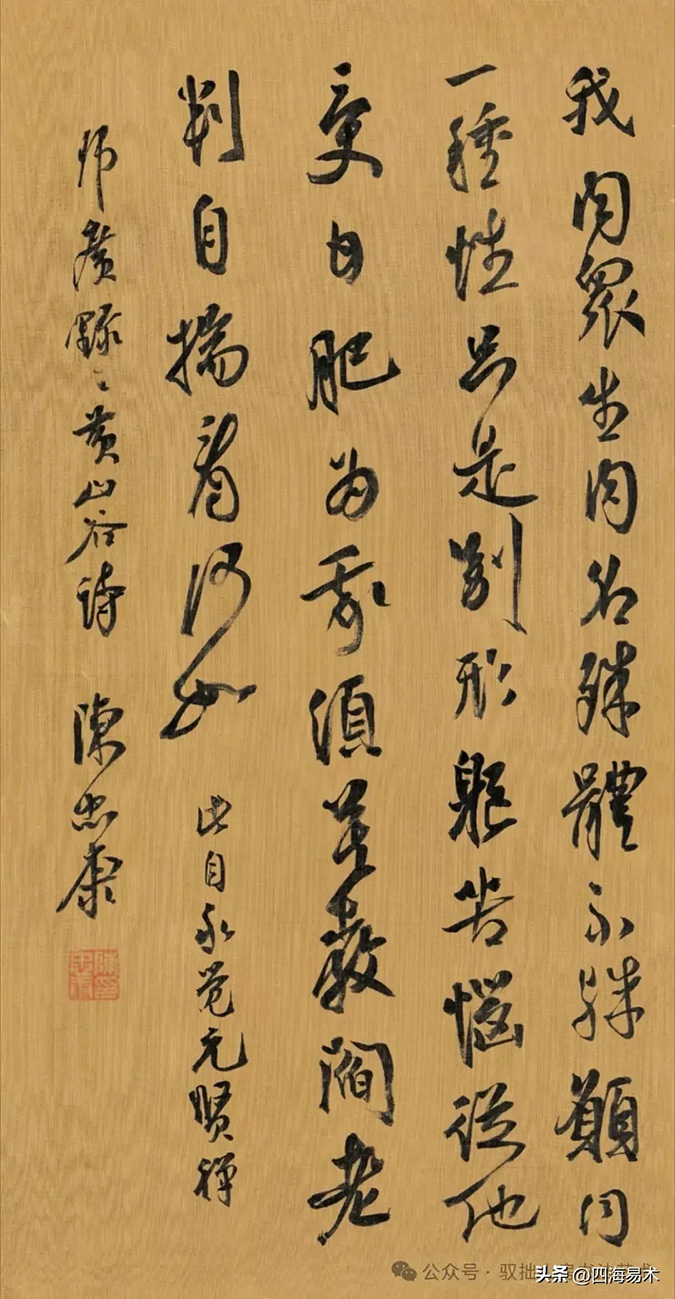 我肉眾生肉名殊體不殊願同
一種性只是别形軀苦惱從他
受甘肥為我須莫教閻老
判自揣看何如 此自永觉元贤禅
师廣録之黄山谷诗 陳忠康
公众号·驭拙
头条@四海易术